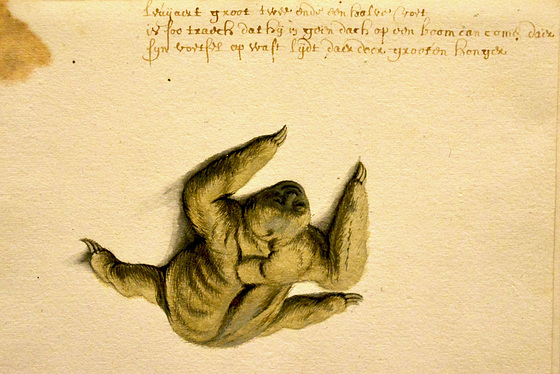 Luijaert groot twee ende een halve voet
is soo traech dat hij in geen dach op een boom can come daer
sijn voetsel op wast lijdt daer door grooten honger